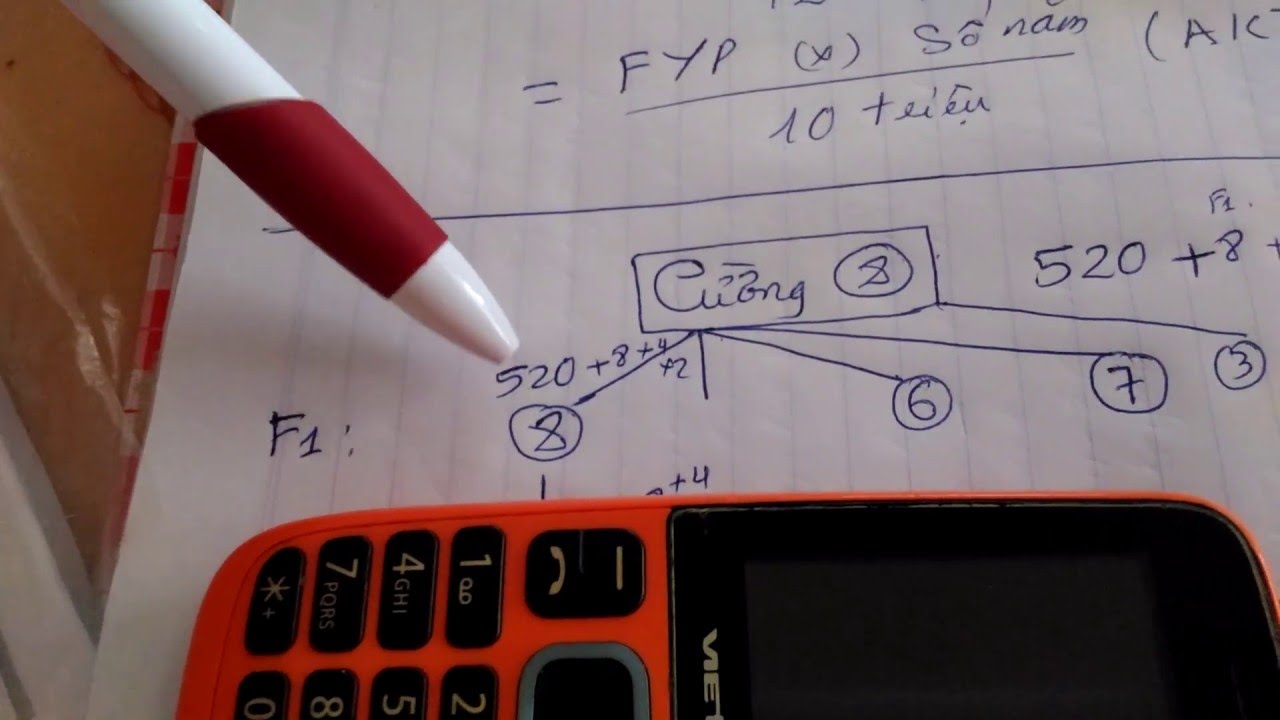 = FYP (x) Số năm (AK
10 triệu
F1.
Cường 8 520 +8 +
520 +8 +4
+2
8 6 7 3
F1:
+4
* + 7 PQRS 4 GHI 1
0 8 5 2
VIET